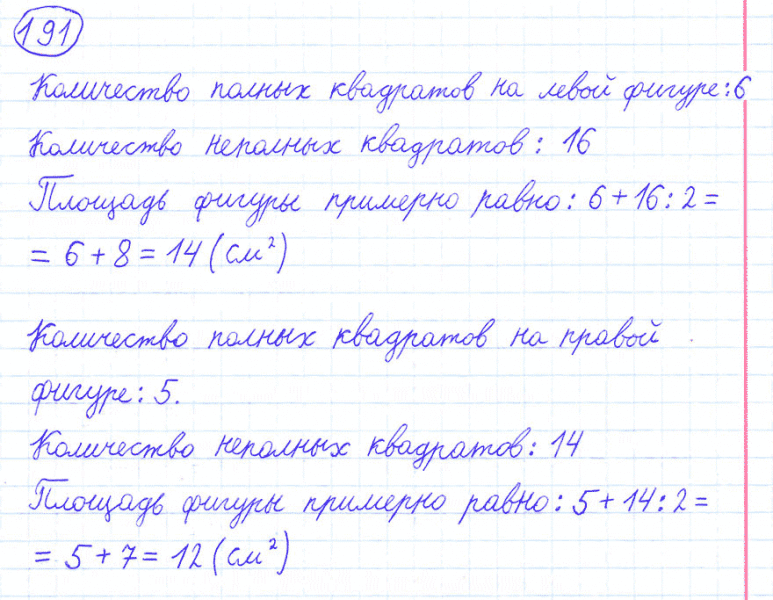 191
Количество полных квадратов на левой фигуре: 6
Количество неполных квадратов: 16
Площадь фигуры примерно равно: 6 + 16 : 2 =
= 6 + 8 = 14 (см²)
Количество полных квадратов на правой
фигуре: 5.
Количество неполных квадратов: 14
Площадь фигуры примерно равно: 5 + 14 : 2 =
= 5 + 7 = 12 (см²)